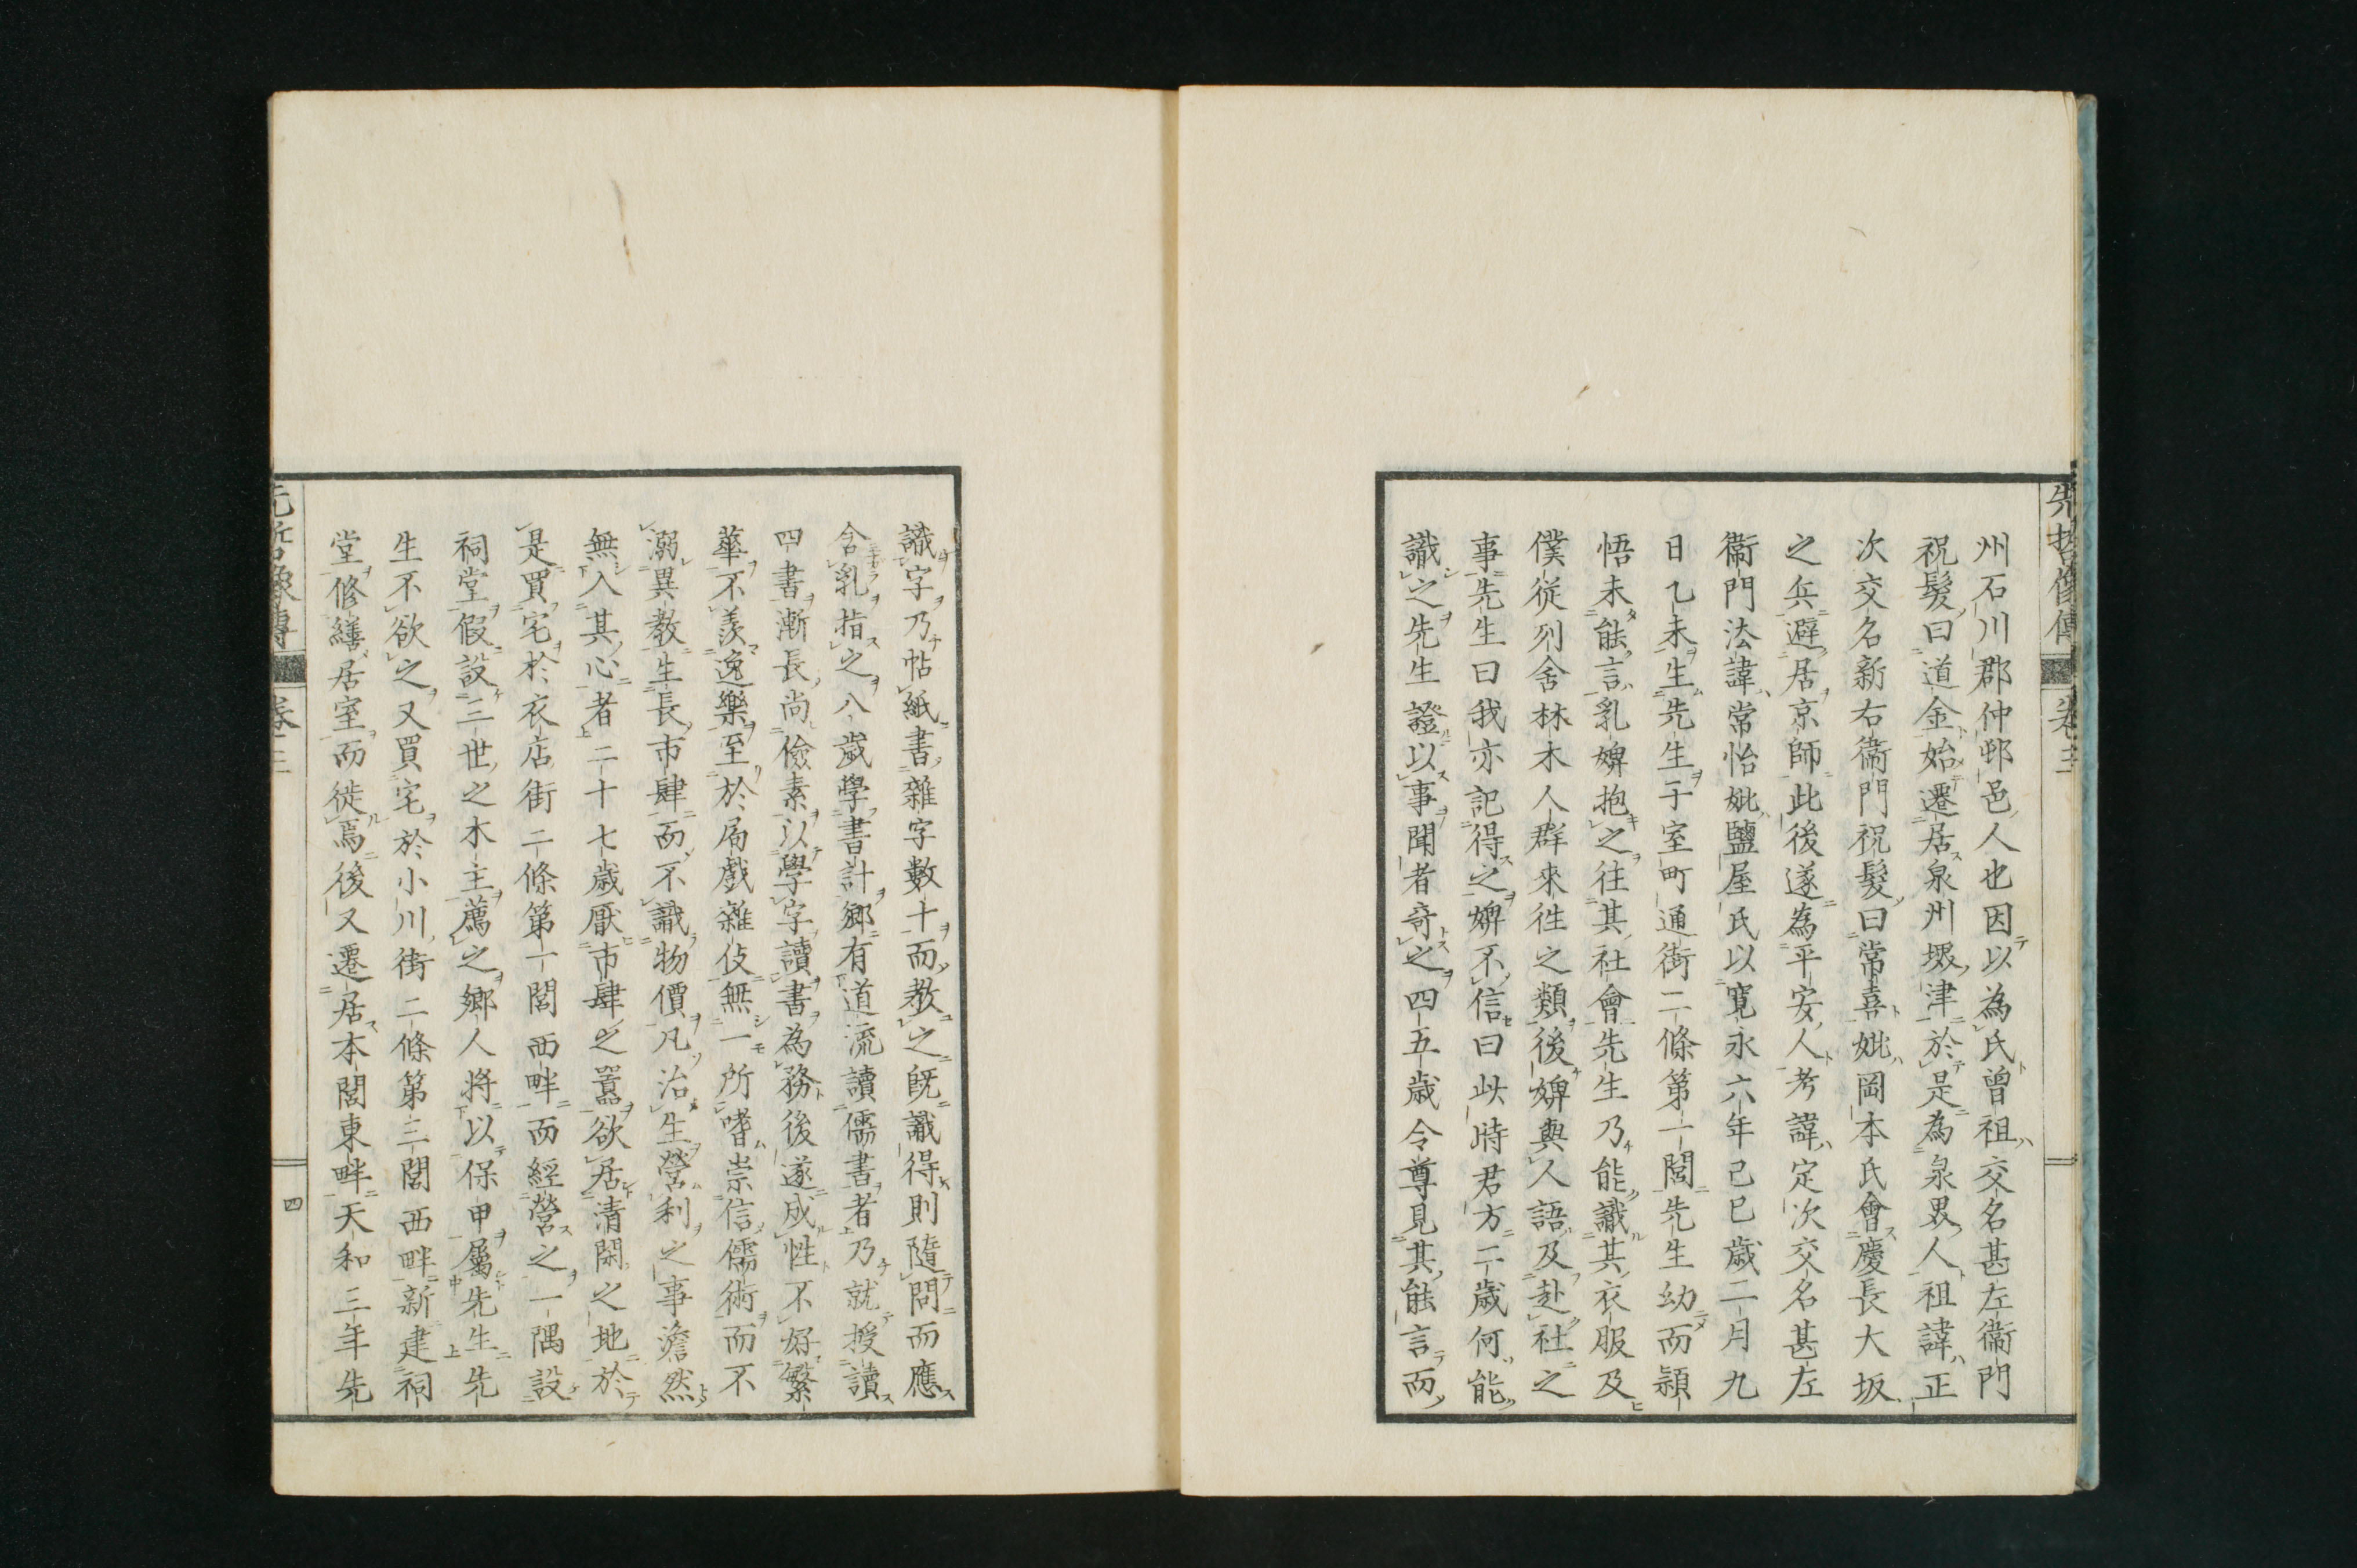 先哲像傳 卷三
州石川郡仲邨邑人也因以為氏曾祖交名甚左衞門
祝髮曰道金始遷居泉州堺津於是為泉男人祖諱正
次交名新右衞門祝髮曰常喜妣岡本氏會慶長大坂
之兵避居京師此後遂為平安人考諱定次交名甚左
衞門法諱常怡妣鹽屋氏以寬永六年己巳歲二月九
日乙未生先生于室町通街二條第一閭先生幼而穎
悟未能言乳婢抱之往其社會先生乃能識其衣服及
僕從列舍林木人群來往之類後婢與人語及赴社之
事先生曰我亦記得之婢不信曰此時君方二歲何能
識之先生證以事聞者奇之四五歲令尊見其能言而
識字乃帖紙書雜字數十而教之既識得則隨問而應
含乳指之八歲學書計鄉有道流讀儒書者乃就授讀
四書漸長尚儉素以學字讀書為務後遂成性不好繁
華不羨逸樂至於局戲雜伎無一所嗜崇信儒術而不
溺異教生長市肆而不識物價凡治生營利之事澹然
無入其心者二十七歲厭市肆之囂欲居清閑之地於
是買宅於衣店街二條第一閭西畔而經營之一隅設
祠堂假設三世之木主薦之鄉人將以保甲屬先生先
生不欲之又買宅於小川街二條第三閭西畔新建祠
堂修繕居室而徙焉後又遷居本閭東畔天和三年先
先哲像傳 卷三 四